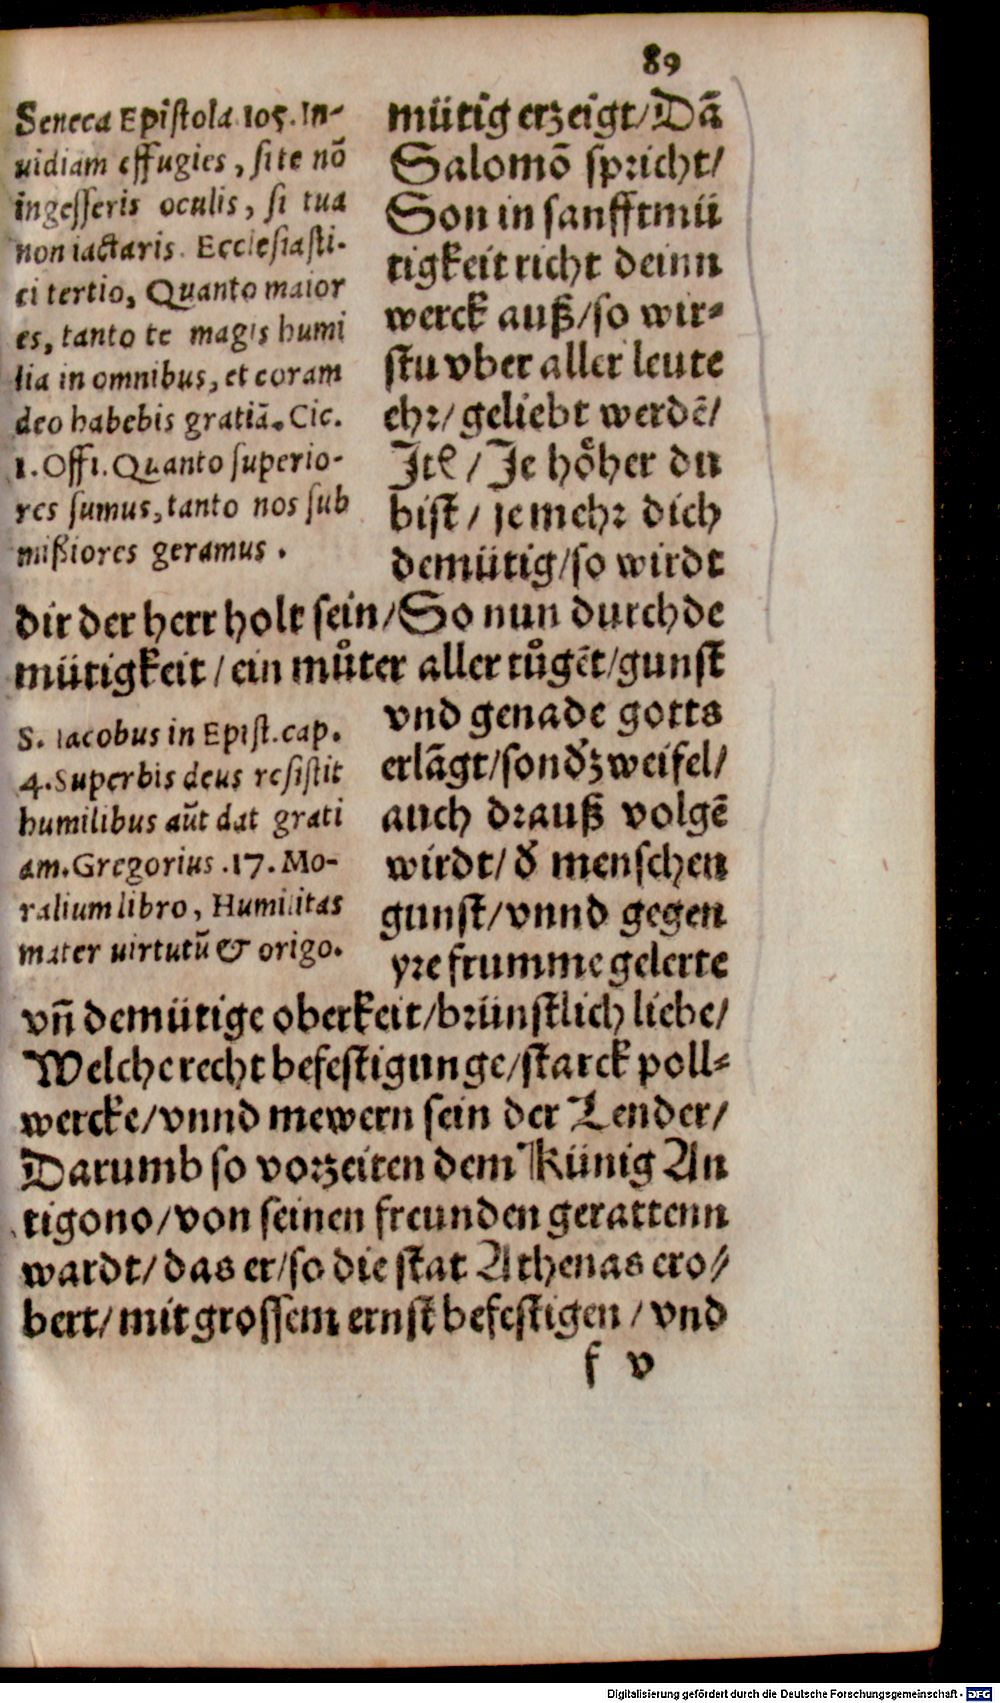 89
Seneca Epistola 105. In-
uidiam effugies, si te nō
ingesseris oculis, si tua
non iactaris. Ecclesiasti-
ci tertio, Quanto maior
es, tanto te magis humi
lia in omnibus, et coram
deo habebis gratiā. Cic.
1. Offi. Quanto superio-
res sumus, tanto nos sub
mißiores geramus.
mütig erzeigt/ Dā
Salomō spricht/
Son in sanfftmü
tigkeit richt deinn
werck auß/ so wir-
stu vber aller leute
ehr/ geliebt werdē/
Itē / Je hoͤher du
bist / je mehr dich
demütig/ so wirdt
dir der herr holt sein/ So nun durch de
mütigkeit / ein můter aller tůgēt/ gunst
S. Iacobus in Epist. cap.
4. Superbis deus resistit
humilibus aūt dat grati
am. Gregorius .17. Mo-
ralium libro, Humilitas
mater uirtutū & origo.
vnd genade gotts
erlāgt/ sondˀ zweifel/
auch drauß volgē
wirdt/ dˀ menschen
gunst/ vnnd gegen
yre frumme gelerte
vn̄ demütige oberkeit/ brünstlich liebe/
Welche recht befestigunge/ starck poll-
wercke/ vnnd mewern sein der Lender/
Darumb so vorzeiten dem Künig An
tigono/ von seinen freunden gerattenn
wardt/ das er/ so die stat Athenas ero//
bert/ mit grossem ernst befestigen / vnd
f v
Digitalisierung gefördert durch die Deutsche Forschungsgemeinschaft - DFG